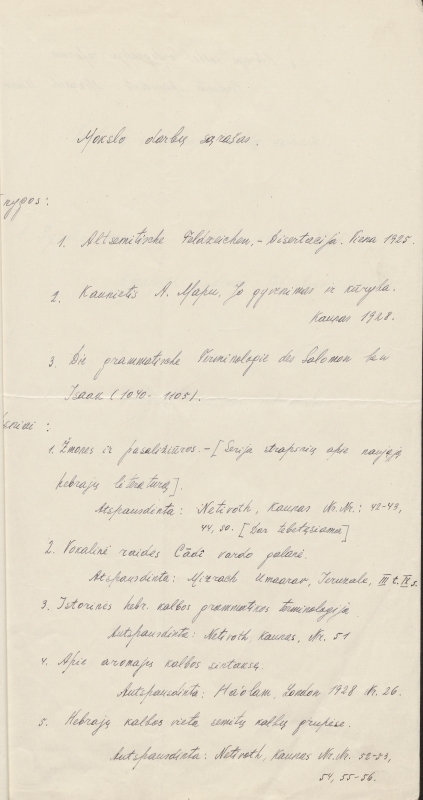 Mokslo darbų sąrašas.
rygos:
1. Altsemitische Feldzeichen, - Disertacija. Viena 1925.
2. Kaunietis A. Mapu, Jo gyvenimas ir kūryba.
Kaunas 1928.
3. Die grammatische Terminologie des Salomon ben
Isaak (1040 - 1105).
sniai:
1. Žmonės ir pasaližiūros. - [Serija straipsnių apie naująją
hebrajų literatūrą].
Atspausdinta: Netivoth, Kaunas Nr. Nr.: 42-43,
44, 50. [Dar tebetęsiama]
2. Vokalinė raidės Cādē vardo galūnė.
Atspausdinta: Mizrach Umaarav, Jeruzala, III t. IV s.
3. Istorinės hebr. kalbos gramatikos terminologija
Autspausdinta: Netivoth Kaunas, Nr. 51
4. Apie aramajų kalbos sintaksę.
Autspausdinta: Ha'olam, London 1928 Nr. 26.
5. Hebrajų kalbos vieta semitų kalbų grupėse.
Autspausdinta: Netivoth, Kaunas Nr. Nr. 52-53,
54, 55-56.